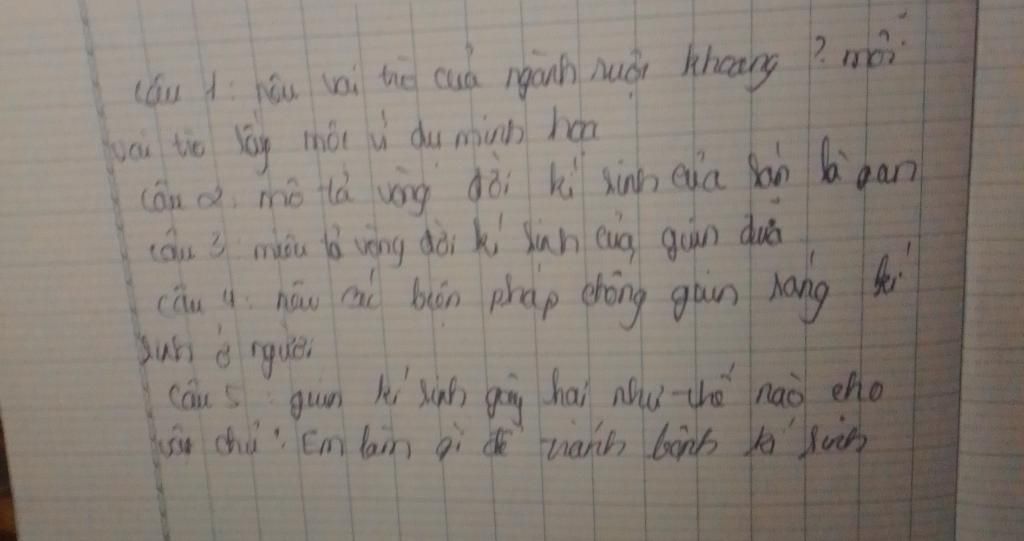 Câu 1: nêu vai trò của ngành ruột khoang ? mỗi
vai trò lấy một ví dụ minh họa
Câu 2: mô tả vòng đời kí sinh của sán lá gan
Câu 3: miêu tả vòng đời kí sinh của giun đũa
Câu 4: nêu các biện pháp chống giun sáng kí
sinh ở người
Câu 5: giun kí sinh gây hại như thế nào cho
vật chủ? Em làm gì để tránh bệnh kí sinh